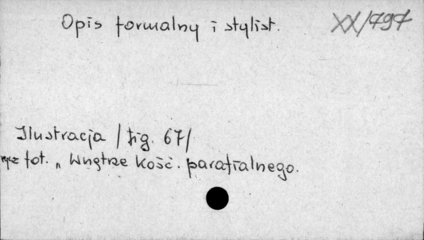 Opis formalny i stylist.
XX/797
Ilustracja /fig. 67/
fot. „ Wnętrze kość. parafialnego.